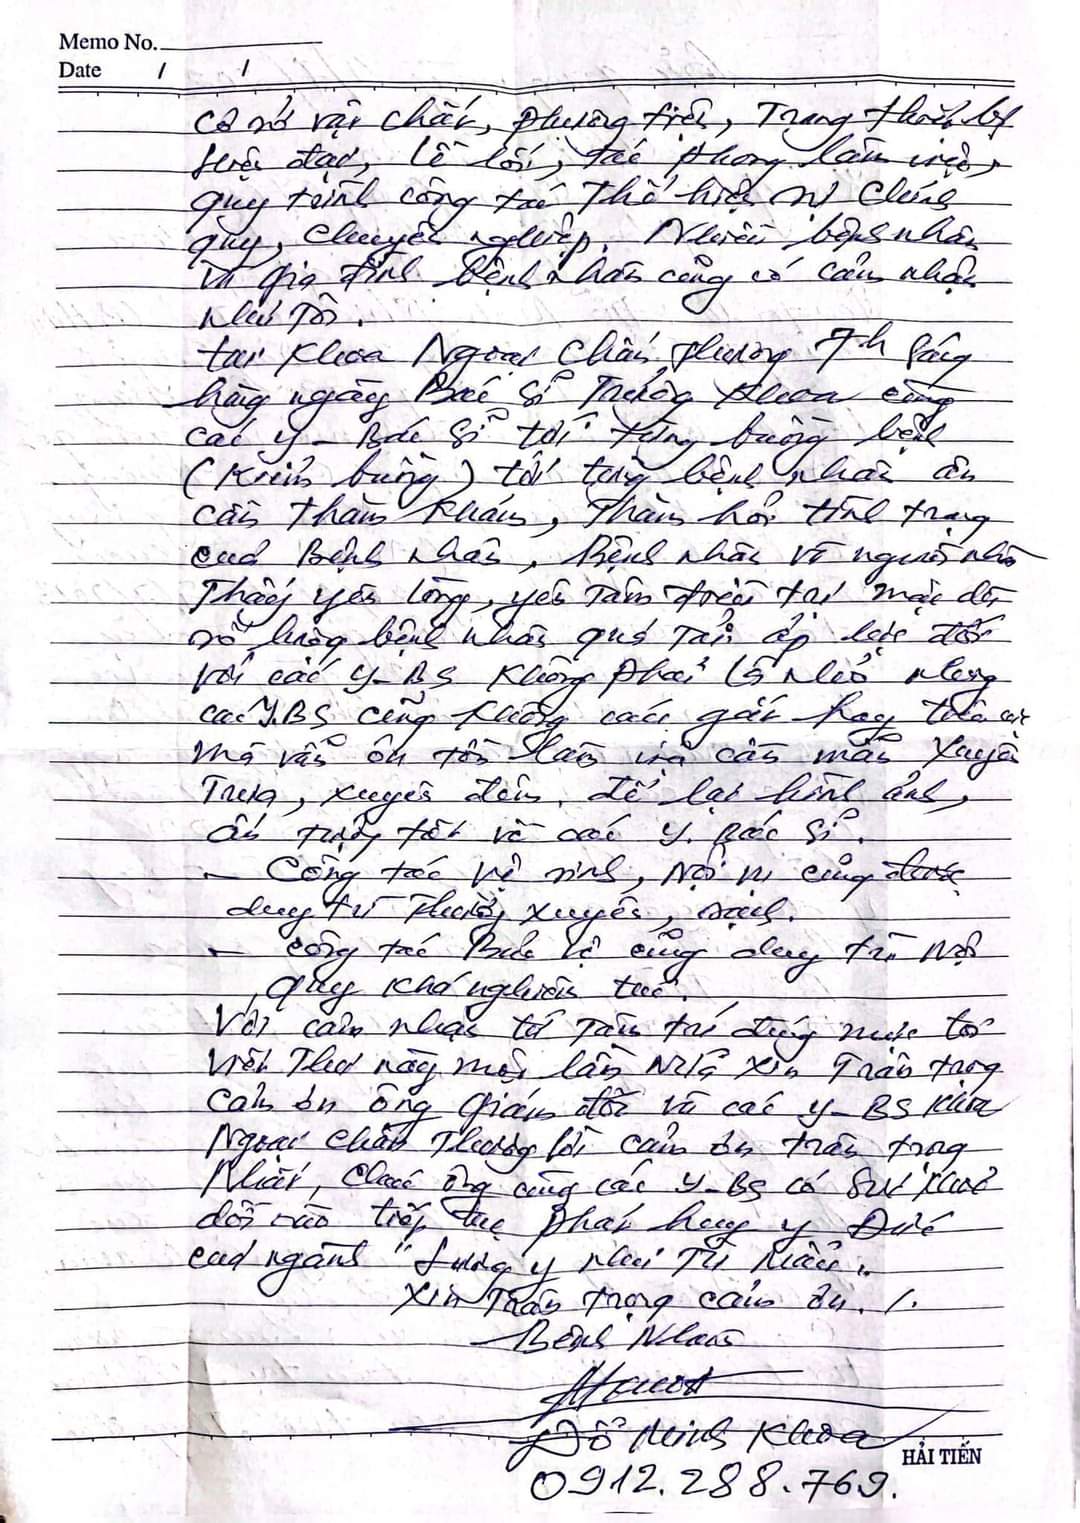 Memo No.
Date / /
cơ sở vật chất, phương tiện, Trang thiết bị
hiện đại, lề lối, tác phong làm việc,
quy trình công tác Thể hiện sự chính
quy, chuyên nghiệp. Nhiều bệnh nhân
và gia đình bệnh nhân cũng có cảm nhận
như Tôi.
tại Khoa Ngoại Chấn thương 7h sáng
hàng ngày Bác sĩ Trưởng Khoa cùng
các y - Bác sĩ tới từng buồng bệnh
(Kiểm buồng) tới từng bệnh nhân ân
cần thăm khám, Thăm hỏi tình trạng
của Bệnh nhân, Bệnh nhân và người nhà
Thấy yên lòng, yên tâm điều trị mặc dù
số lượng bệnh nhân quá tải áp lực đối
với các y-BS không phải là nhỏ nhưng
các Y.BS cũng không cáu gắt hay
mà vẫn ôn tồn làm việc cần mẫn xuyên
Trưa, xuyên đêm. để lại hình ảnh,
ấn tượng tốt về các y. Bác sĩ.
- Công tác vệ sinh, nội vụ cũng được
duy trì thường xuyên, sạch.
- công tác Bảo vệ cũng duy trì nội
quy khá nghiêm túc.
Với cảm nhận từ Tâm trí đúng mực tôi
viết Thư này một lần nữa xin Trân trọng
cảm ơn ông Giám đốc và các y-BS khoa
Ngoại chấn Thương lời cảm ơn trân trọng
Nhất, chúc ông cùng các y-BS có sức khoẻ
dồi dào tiếp tục phát huy y Đức
của ngành "Lương y như Từ Mẫu".
Xin Trân trọng cảm ơn./.
Bệnh Nhân
Đỗ Minh Khoa
0912.288.769.
HẢI TIẾN